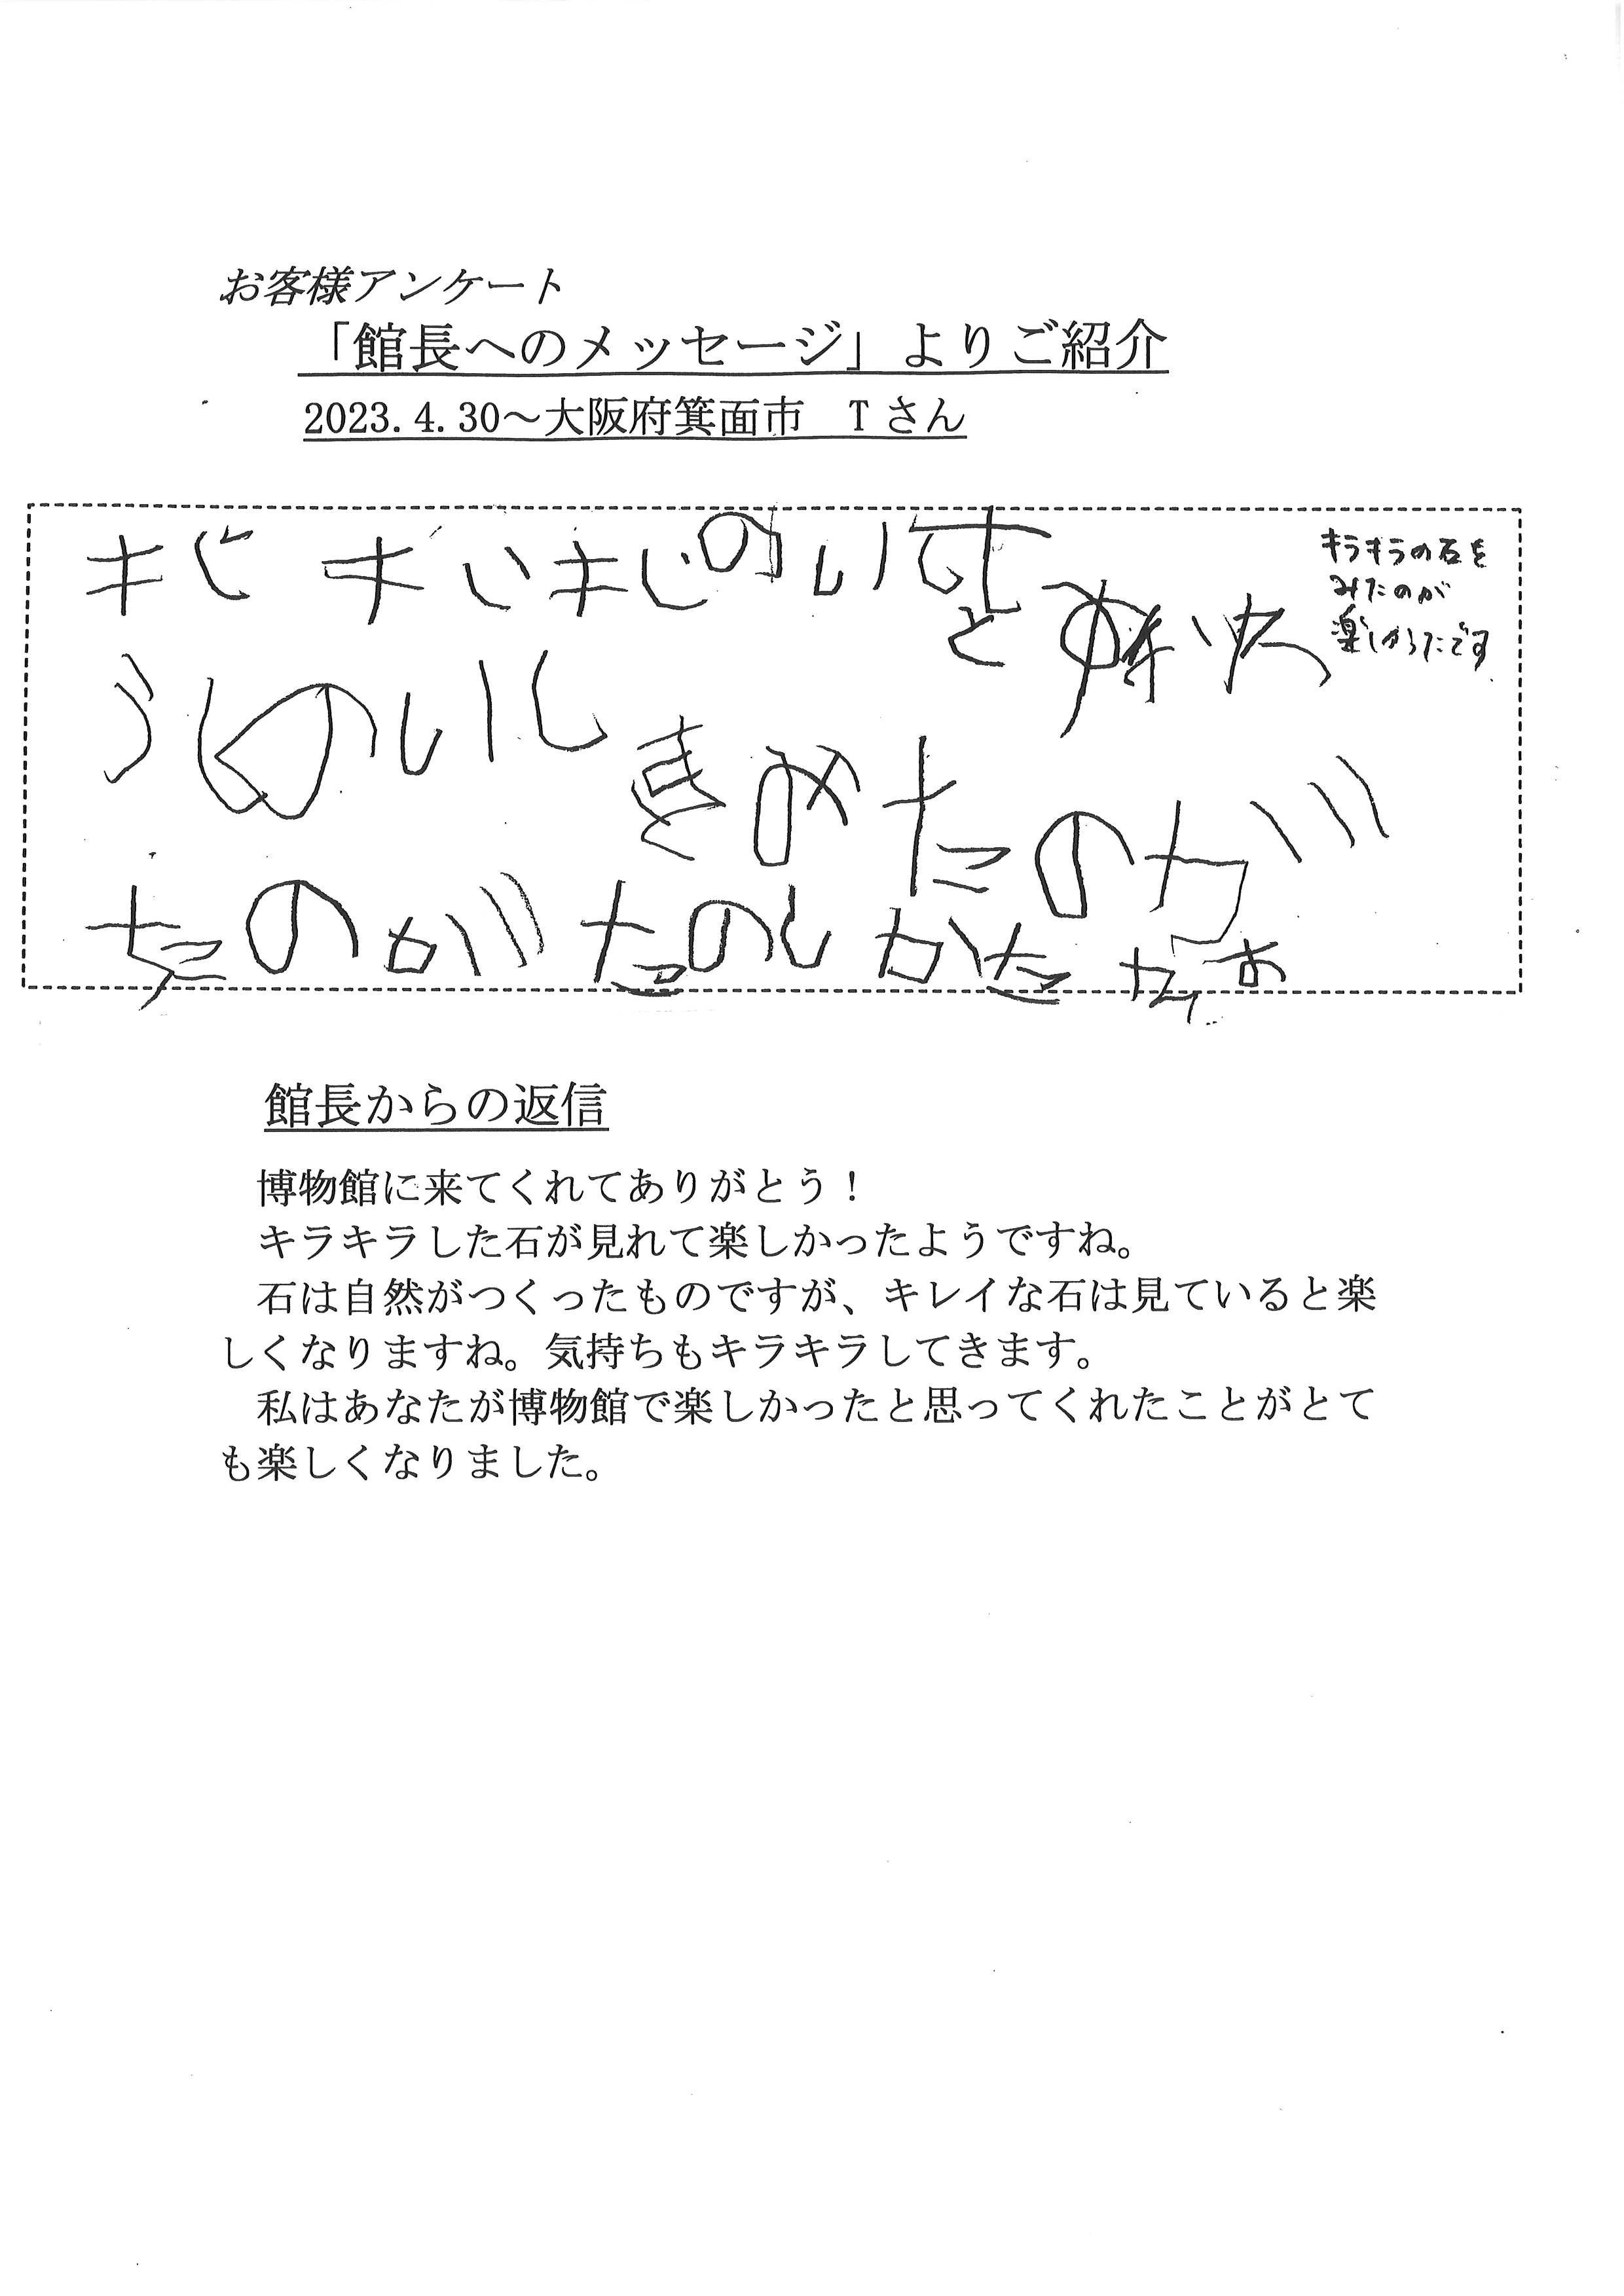 お客様アンケート
「館長へのメッセージ」よりご紹介
2023.4.30～大阪府箕面市　Tさん
キラキラの石を
みたのが
楽しかったです
のいし
をみたのが
たのがたのしかた
館長からの返信
博物館に来てくれてありがとう！
キラキラした石が見れて楽しかったようですね。
石は自然がつくったものですが、キレイな石は見ていると楽
しくなりますね。気持ちもキラキラしてきます。
私はあなたが博物館で楽しかったと思ってくれたことがとて
も楽しくなりました。